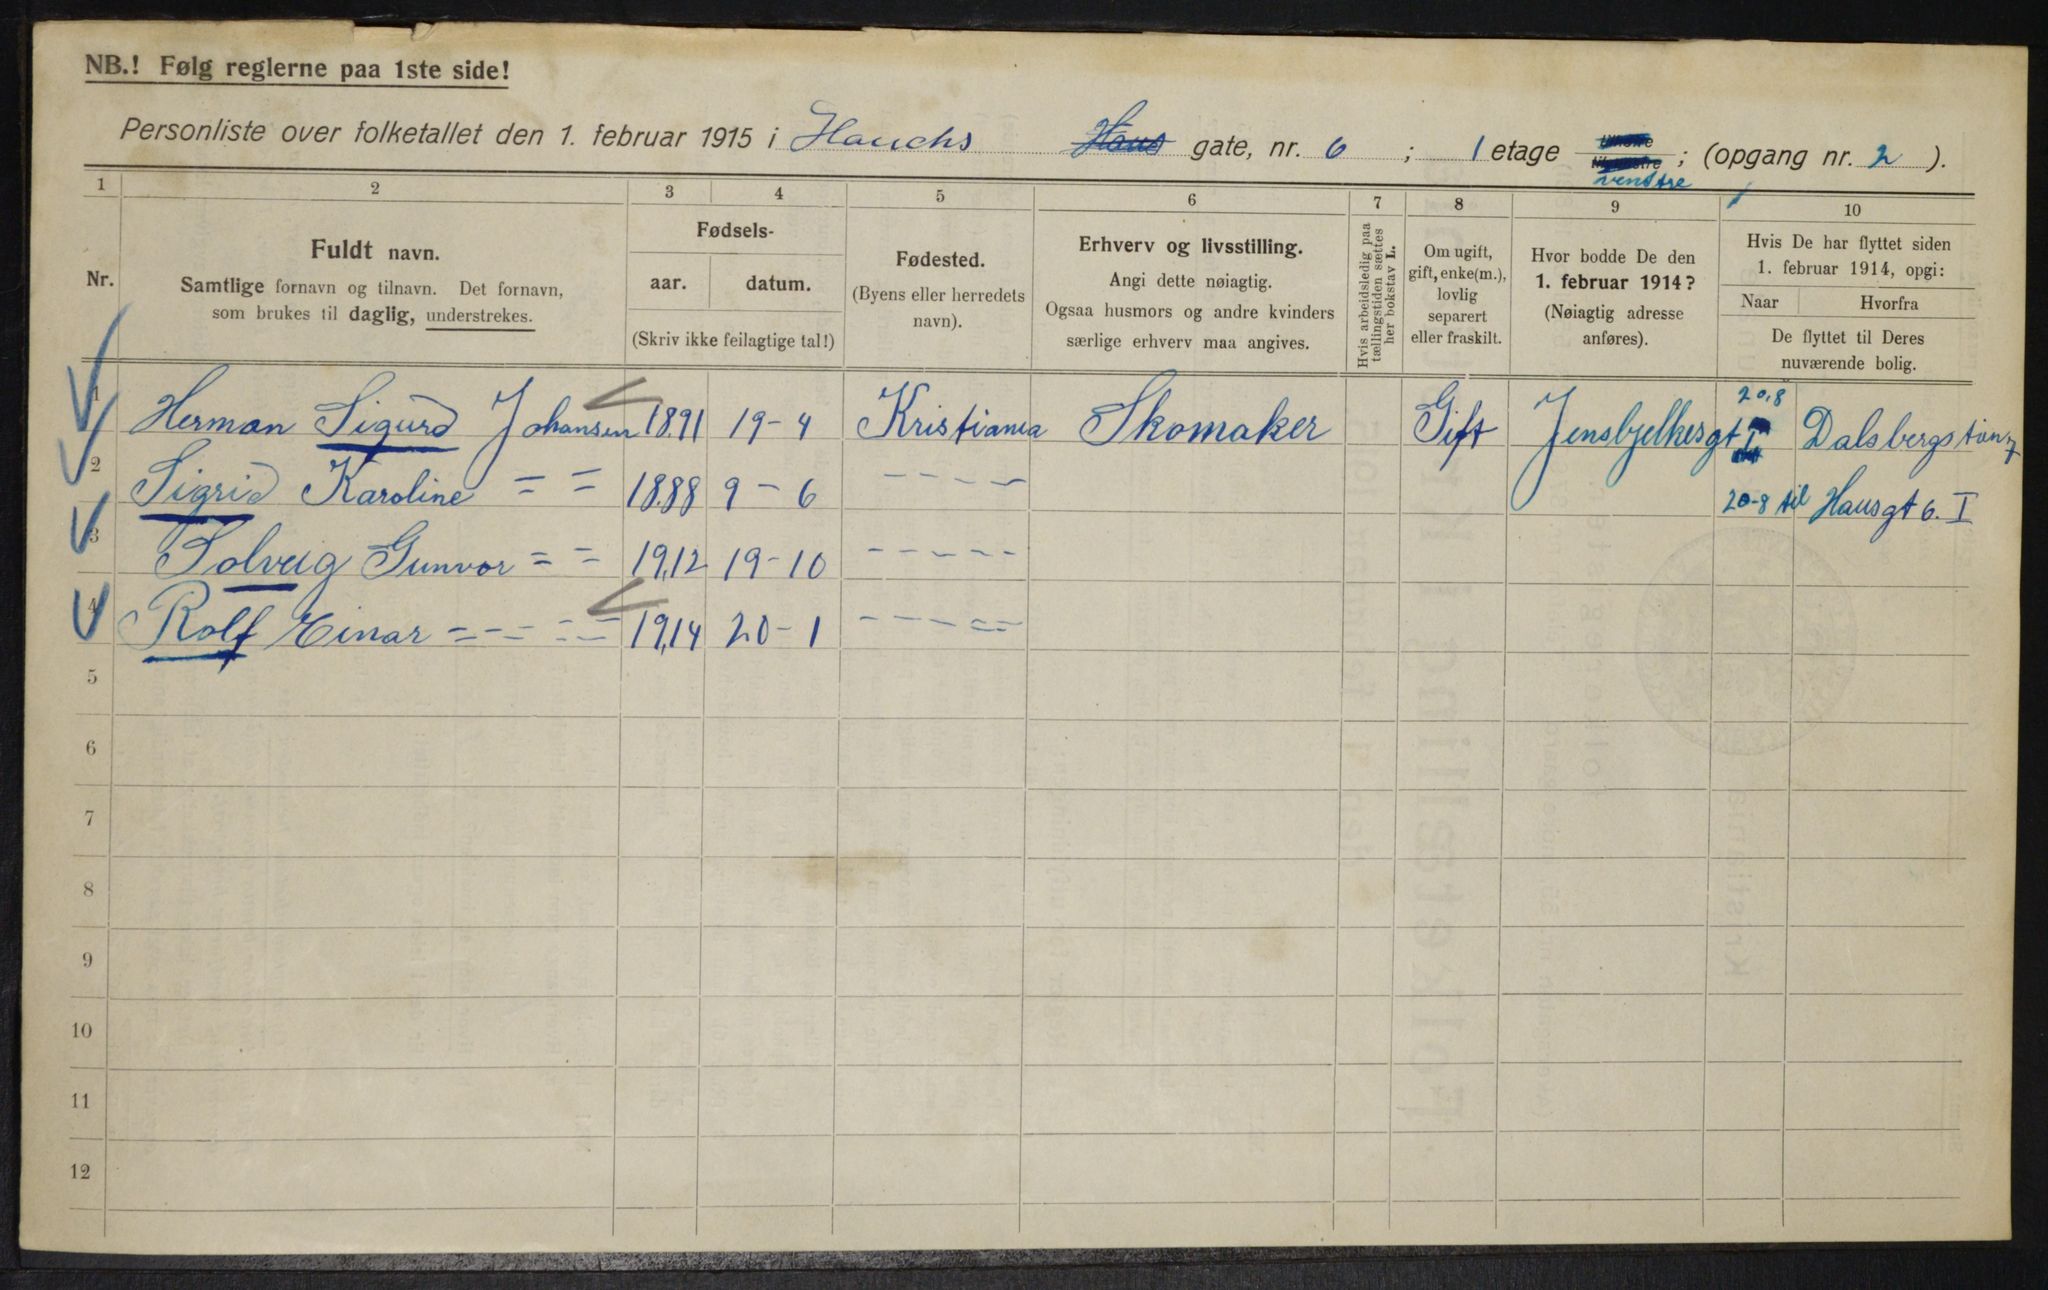 NB.! Følg reglerne paa 1ste side!
Personliste over folketallet den 1. februar 1915 i Hauchs Haus gate, nr. 6 ; 1 etage venstre ; (opgang nr. 2 ).
1 2 3 4 5 6 7 8 9 10
Nr.
Fuldt navn.
Samtlige fornavn og tilnavn. Det fornavn,
som brukes til daglig, understrekes.
Fødsels-
aar. datum.
(Skriv ikke feilagtige tal!)
Fødested.
(Byens eller herredets
navn).
Erhverv og livsstilling.
Angi dette nøiagtig.
Ogsaa husmors og andre kvinders
særlige erhverv maa angives.
Hvis arbeidsledig paa
tællingstiden sættes
her bokstav L.
Om ugift,
gift, enke(m.),
lovlig
separert
eller fraskilt.
Hvor bodde De den
1. februar 1914?
(Nøiagtig adresse
anføres).
Hvis De har flyttet siden
1. februar 1914, opgi:
Naar Hvorfra
De flyttet til Deres
nuværende bolig.
1 Herman Sigurd Johansen 1891 19-4 Kristiania Skomaker Gift Jensbjelkesgt 20.8 Dalsbergstien 7
2 Sigrid Karoline = = 1888 9-6 - - - - 20-8 til Hausgt 6. I
3 Solveig Gunvor = = 1912 19-10 - - - - -
4 Rolf Einar = - = = = 1914 20-1 - - - = =
5
6
7
8
9
10
11
12